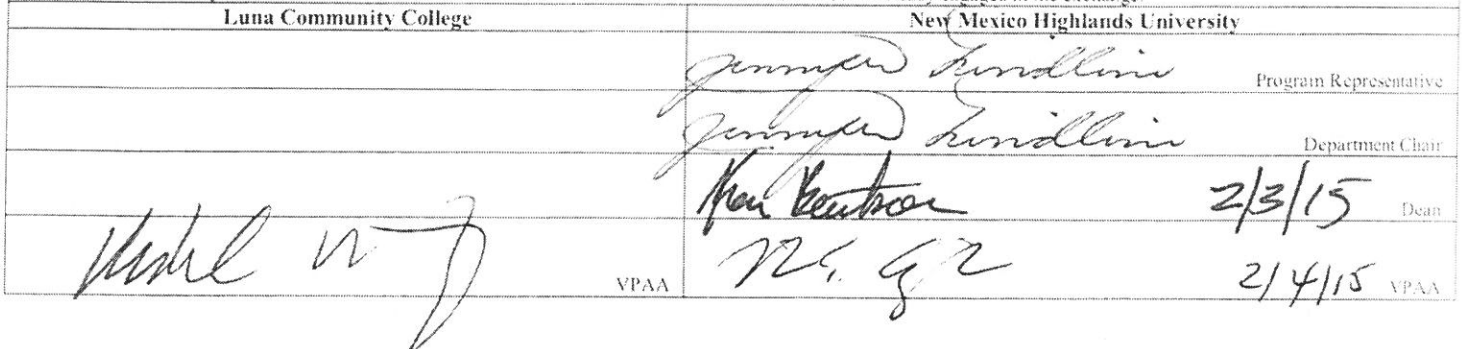 engaged in the exchange
Luna Community College New Mexico Highlands University
Jennifer Lindline Program Representative
Jennifer Lindline Department Chair
2/3/15 Dean
VPAA 2/4/15 VPAA